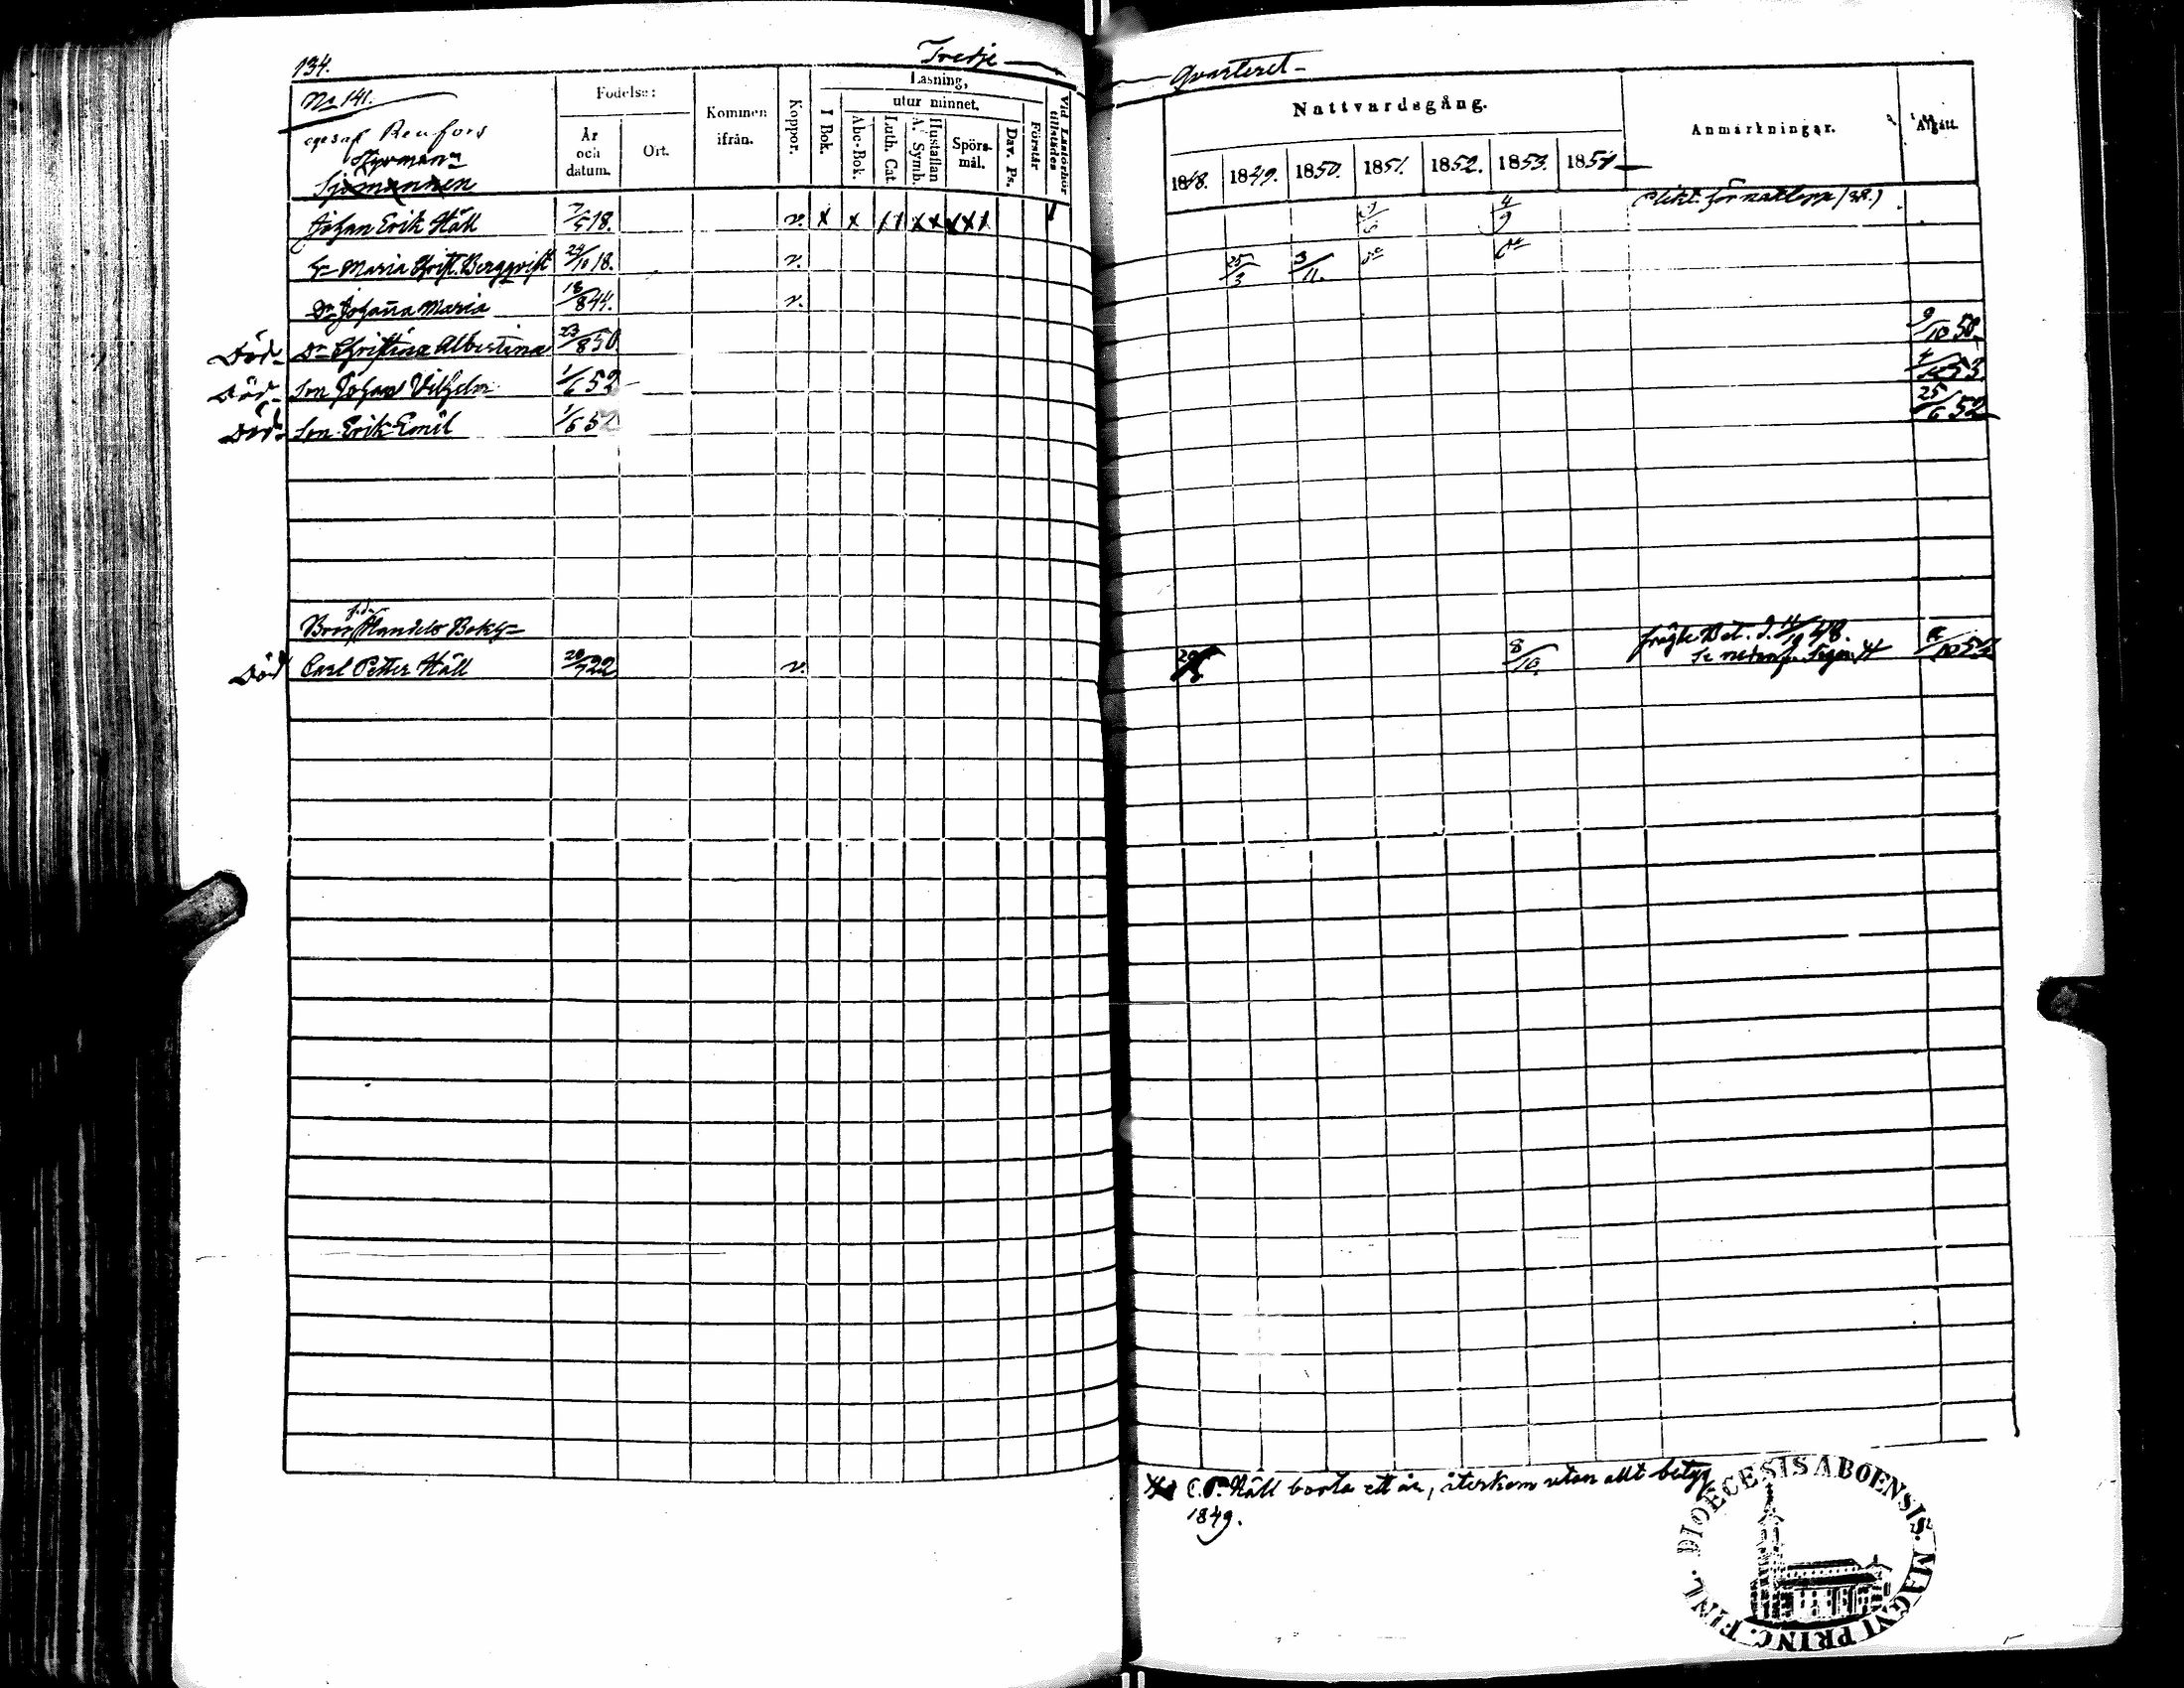 134.
Tredje
Qvarteret
No 141.
Födelse:
År och datum.
Ort.
Kommen ifrån.
Koppor.
Läsning,
I Bok.
utur minnet.
Abc-Bok.
Luth. Cat.
Hustaflan A. Symb.
Spörsmål.
Dav. Ps.
Förstår
Vid Läsförhör tillstädes
Nattvardsgång.
Anmärkningar.
Afgått.
1848. 1849. 1850. 1851. 1852. 1853. 1854
eges af Renfors
Styrman
Sjömannen
Johan Erik Häll 7/5 18. v. x x // xx xxx 4/9 Plikt. för
H. Maria Christ. Bergqvist 24/10 18. v. 25/3 3/11.
Dr Johanna Maria 18/8 44. v.
Död Dr Christina Albertina 23/8 50 9/10 50.
Död Son Johan Vilhelm 1/6 52 53.
Död Son Erik Emil 1/6 52 25/6 52
Bror, Handels Bokh.
Död Carl Petter Häll 20/7 22 v. 8/10. Bet. d. 48.
Se nedanför
C. P. Häll borta ett år, återkom utan allt betyg
1849.
DIOECESIS ABOENSIS. MAGNI PRINC. FINL.